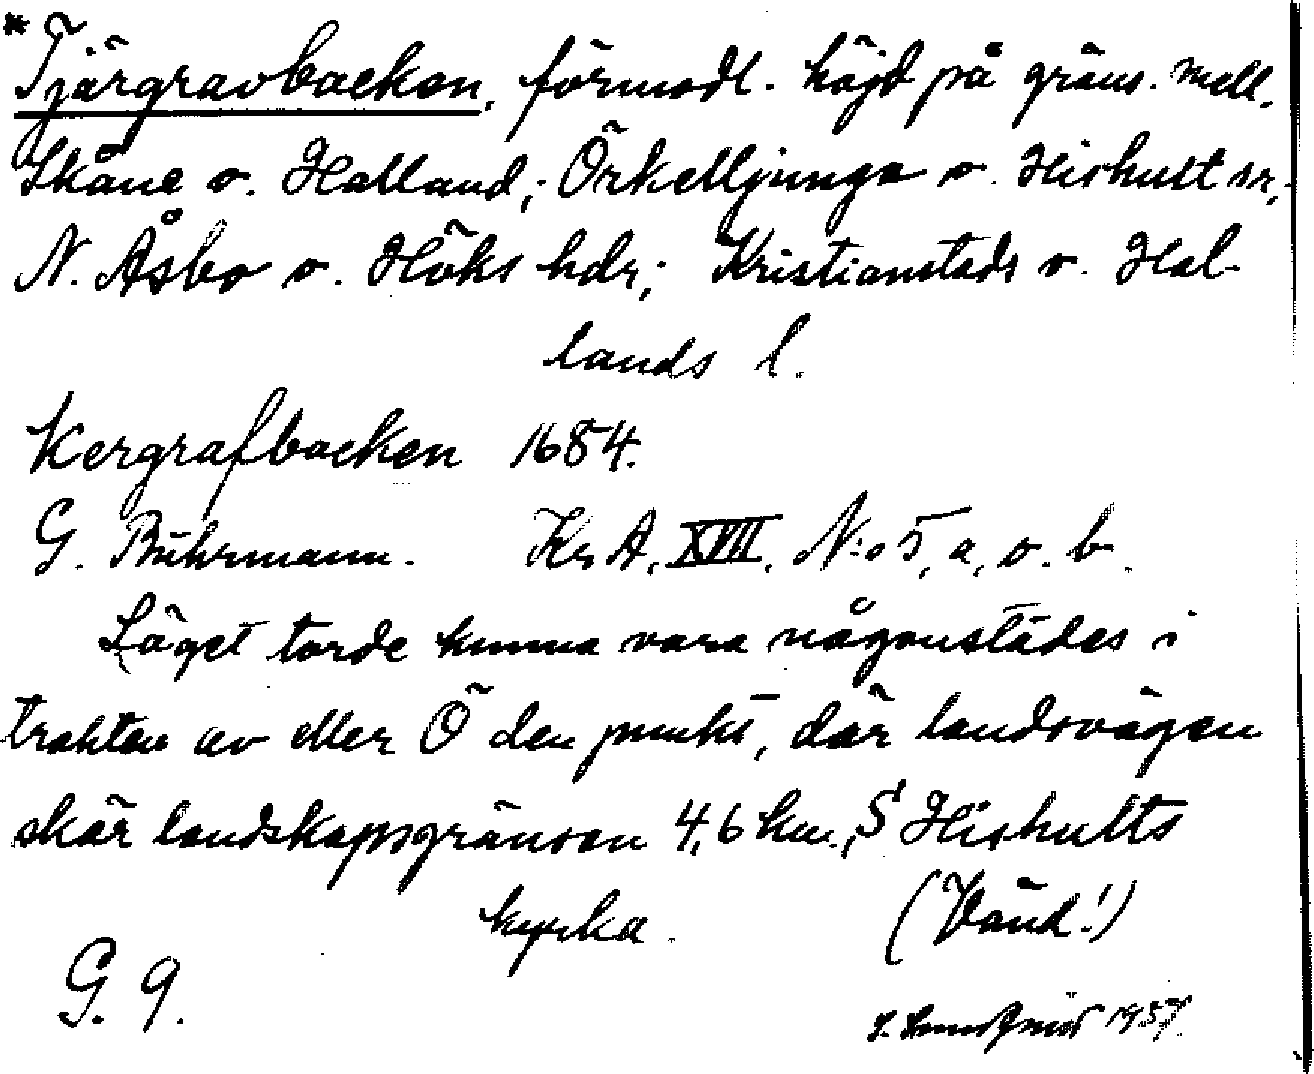 *Tjärgravbacken, förmodl. höjd på gräns. mell.
Skåne o. Halland; Örkelljunga o. Hishult sr,
N. Åsbo o. Höks hdr; Kristianstads o. Hal-
lands l.
Kergrafbacken 1684.
G. Buhrmann. Kr A, XVII, N:o 5, a, o. b.
Läget torde kunna vara någonstädes i
trakten av eller Ö den punkt, där landsvägen
skär landskapsgränsen 4,6 km, S Hishults
kyrka. (Vänd!)
G. 9.
1937.